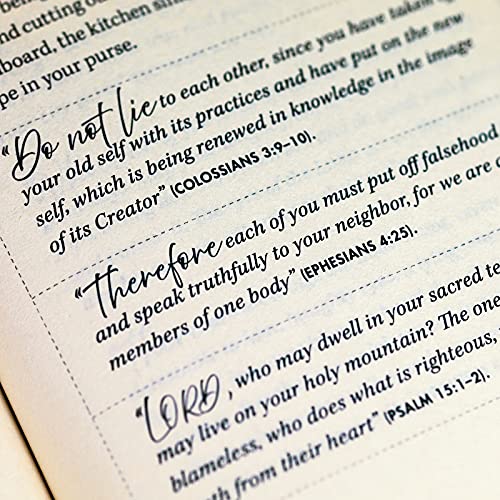 being
and cutting ou
board, the kitchen sin
pe in your purse.
“Do not lie to each other, since you have taken
your old self with its practices and have put on the new
self, which is being renewed in knowledge in the image
of its Creator” (COLOSSIANS 3:9–10).
“Therefore each of you must put off falsehood
and speak truthfully to your neighbor, for we are a
members of one body” (EPHESIANS 4:25).
“LORD, who may dwell in your sacred te
may live on your holy mountain? The one
blameless, who does what is righteous,
th from their heart” (PSALM 15:1–2).